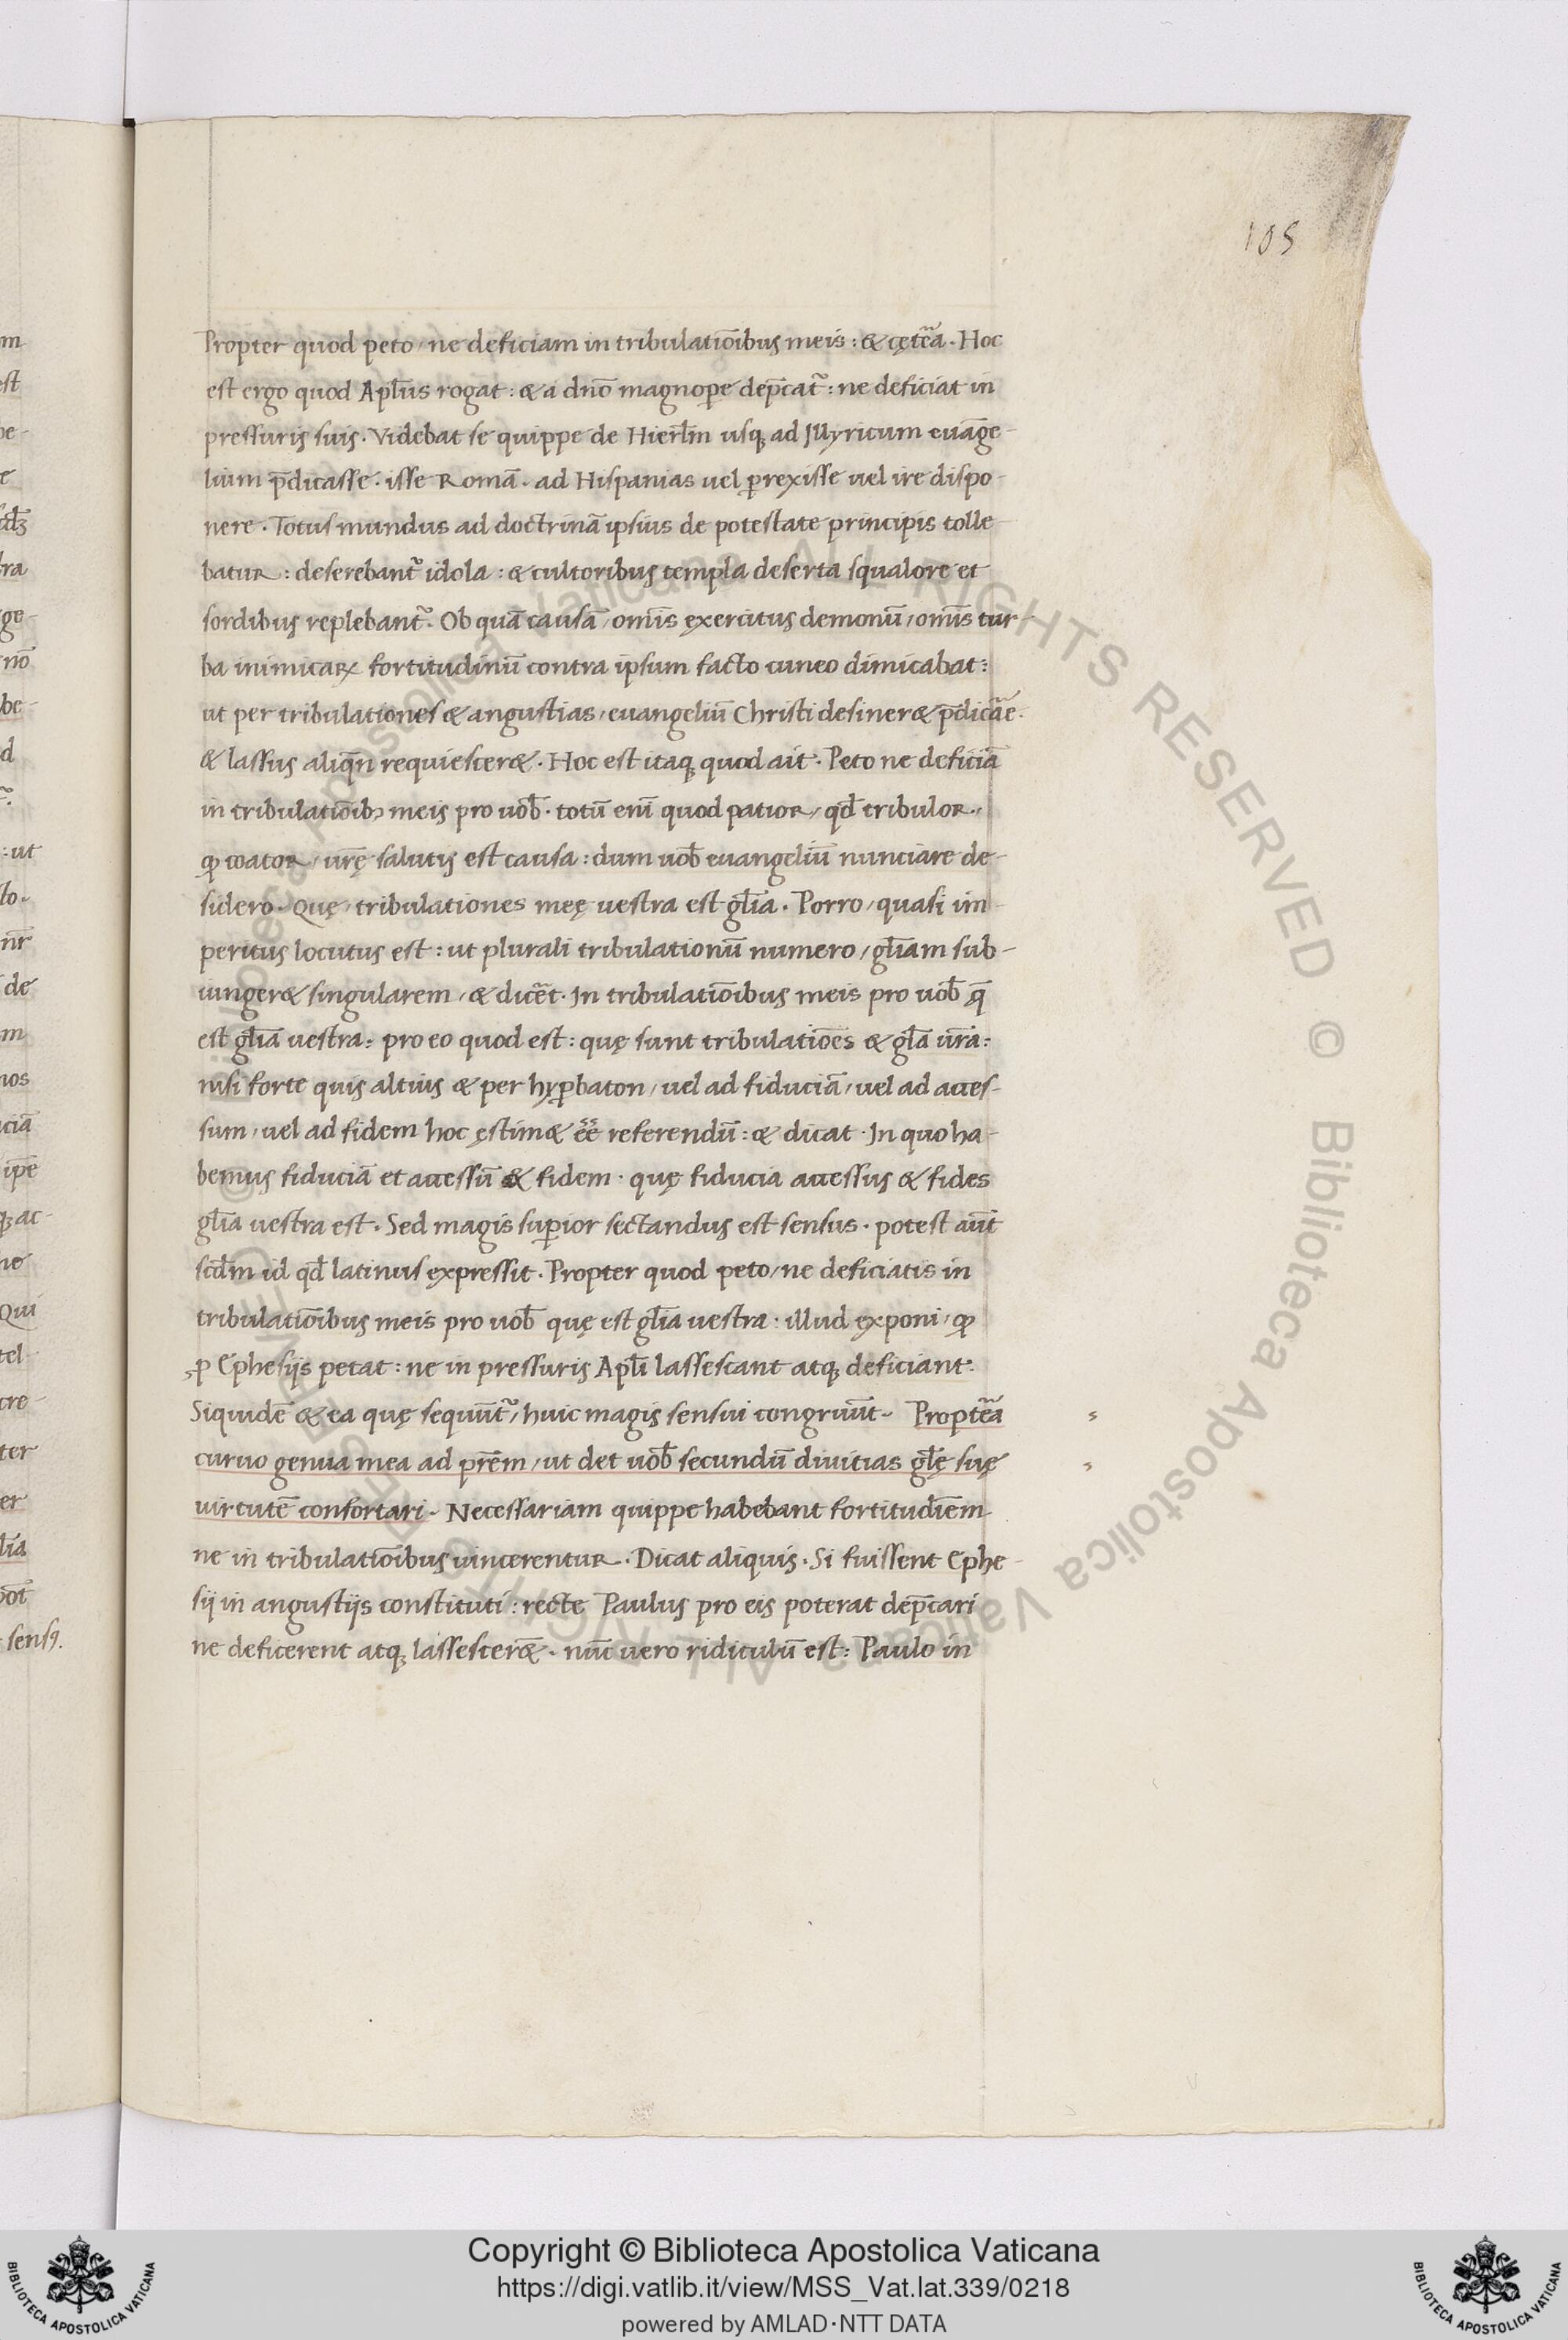 105
Propter quod peto / ne deficiam in tribulatiōibus meis : & cęt̃a . Hoc
est ergo quod Apl̄us rogat : & a dn̄o magnoꝑe dep̄cat᷑ : ne deficiat in
pressuris suis . Videbat se quippe de Hierl̄m usq; ad Jllyricum euāge-
lium p̄dicasse . isse Romā . ad Hispanias uel ꝑrexisse uel ire dispo-
nere . Totus mundus ad doctrinā ipsius de potestate principis tolle-
batur : deserebant᷑ idola : & cultoribus templa deserta squalore et
sordibus replebant᷑ . Ob quā causā / omīs exercitus demonū / omīs tur-
ba inimicaꝝ fortitudinū contra ipsum facto cuneo dimicabat :
ut per tribulationes & angustias / euangeliū Christi desiner& p̄dicãe .
& lassus aliqn̄ requiescer& . Hoc est itaq; quod ait . Peto ne deficiā
in tribulatiōibꝫ meis pro uob̄ . totū enī quod patior / qd̄ tribulor . /
ꝙ coator / ur̄ę salutis est causa : dum uob̄ euangeliū nunciare de-
sidero . Quę / tribulationes meę uestra est gl̄ia . Porro / quasi im-
peritus locutus est : ut plurali tribulationū numero / gl̄iam sub-
iunger& singularem / & dic̃et . In tribulatiōibus meis pro uob̄ q̄
est gl̄ia uestra : pro eo quod est : quę sunt tribulatiōes & gl̄a ur̄a :
nisi forte quis altius & per hyꝑbaton / uel ad fiduciā / uel ad acces-
sum / uel ad fidem hoc ęstim& ēē referendū : & dicat . In quo ha-
bemus fiduciā et accessū & fidem . quę fiducia accessus & fides
gl̄ia uestra est . Sed magis suꝑior sectandus est sensus . potest aūt
scd̄m id qd̄ latinus expressit . Propter quod peto / ne deficiatis in
tribulatiōibus meis pro uob̄ quę est gl̄ia uestra . illud exponi / ꝙ
ꝓ Ephesijs petat : ne in pressuris Apl̄i lassescant atq; deficiant .
Siquidē & ea quę sequūt᷑ / huic magis sensui congruūt . Propt̃ea
curuo genua mea ad pr̄em / ut det uob̄ secundū diuitias gl̄ę suę
uirtutē confortari . Necessariam quippe habebant fortitudīem
ne in tribulatiōibus uincerentur . Dicat aliquis . Si fuissent Ephe-
sij in angustijs constituti : recte Paulus pro eis poterat dep̄cari
ne deficerent atq; lassescer̄& . nūc uero ridiculū est : Paulo in
Copyright © Biblioteca Apostolica Vaticana
https://digi.vatlib.it/view/MSS_Vat.lat.339/0218
powered by AMLAD·NTT DATA